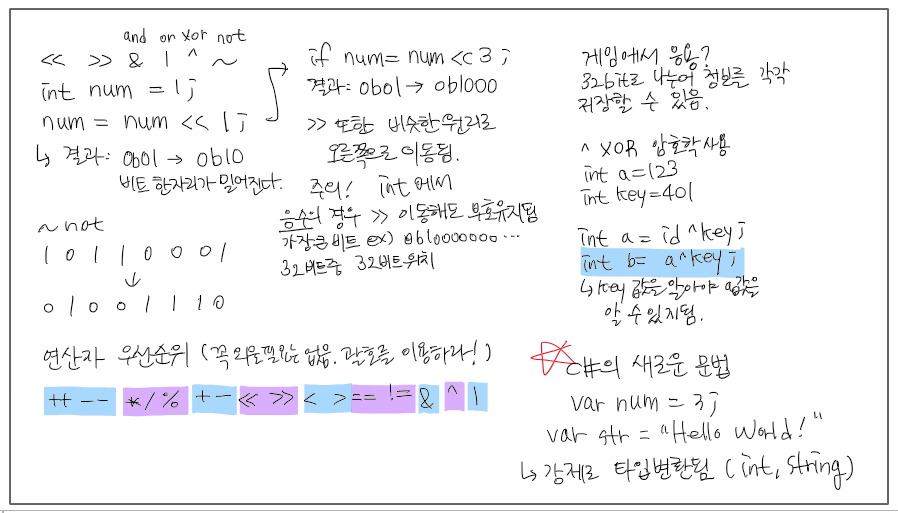 and or xor not
<< >> & | ^ ~
int num = 1;
num = num << 1;
↳ 결과: 0b01 → 0b10
비트 한자리가 밀어진다.
~ not
1 0 1 1 0 0 0 1
↓
0 1 0 0 1 1 1 0
if num = num << 3;
결과: 0b01 → 0b1000
>> 또한 비슷한 원리로
오른쪽으로 이동됨.
주의! int에서
음수의 경우 >> 이동해도 부호유지됨
가장큰비트 ex) 0b10000000...
32비트중 32비트위치
게임에서 응용?
32bit로 나누어 정보를 각각
저장할 수 있음.
^ XOR 암호학사용
int a=123
int key=401
int a = id ^ key;
int b = a^key;
↳ key 값을 알아야 a값을
알 수 있게됨.
연산자 우선순위 (꼭 외울필요는 없음. 괄호를 이용하라!)
++ -- */% +- << >> < > == != & ^ |
C#의 새로운 문법
var num = 3;
var str = "Hello World!"
↳ 강제로 타입변환됨 (int, string)